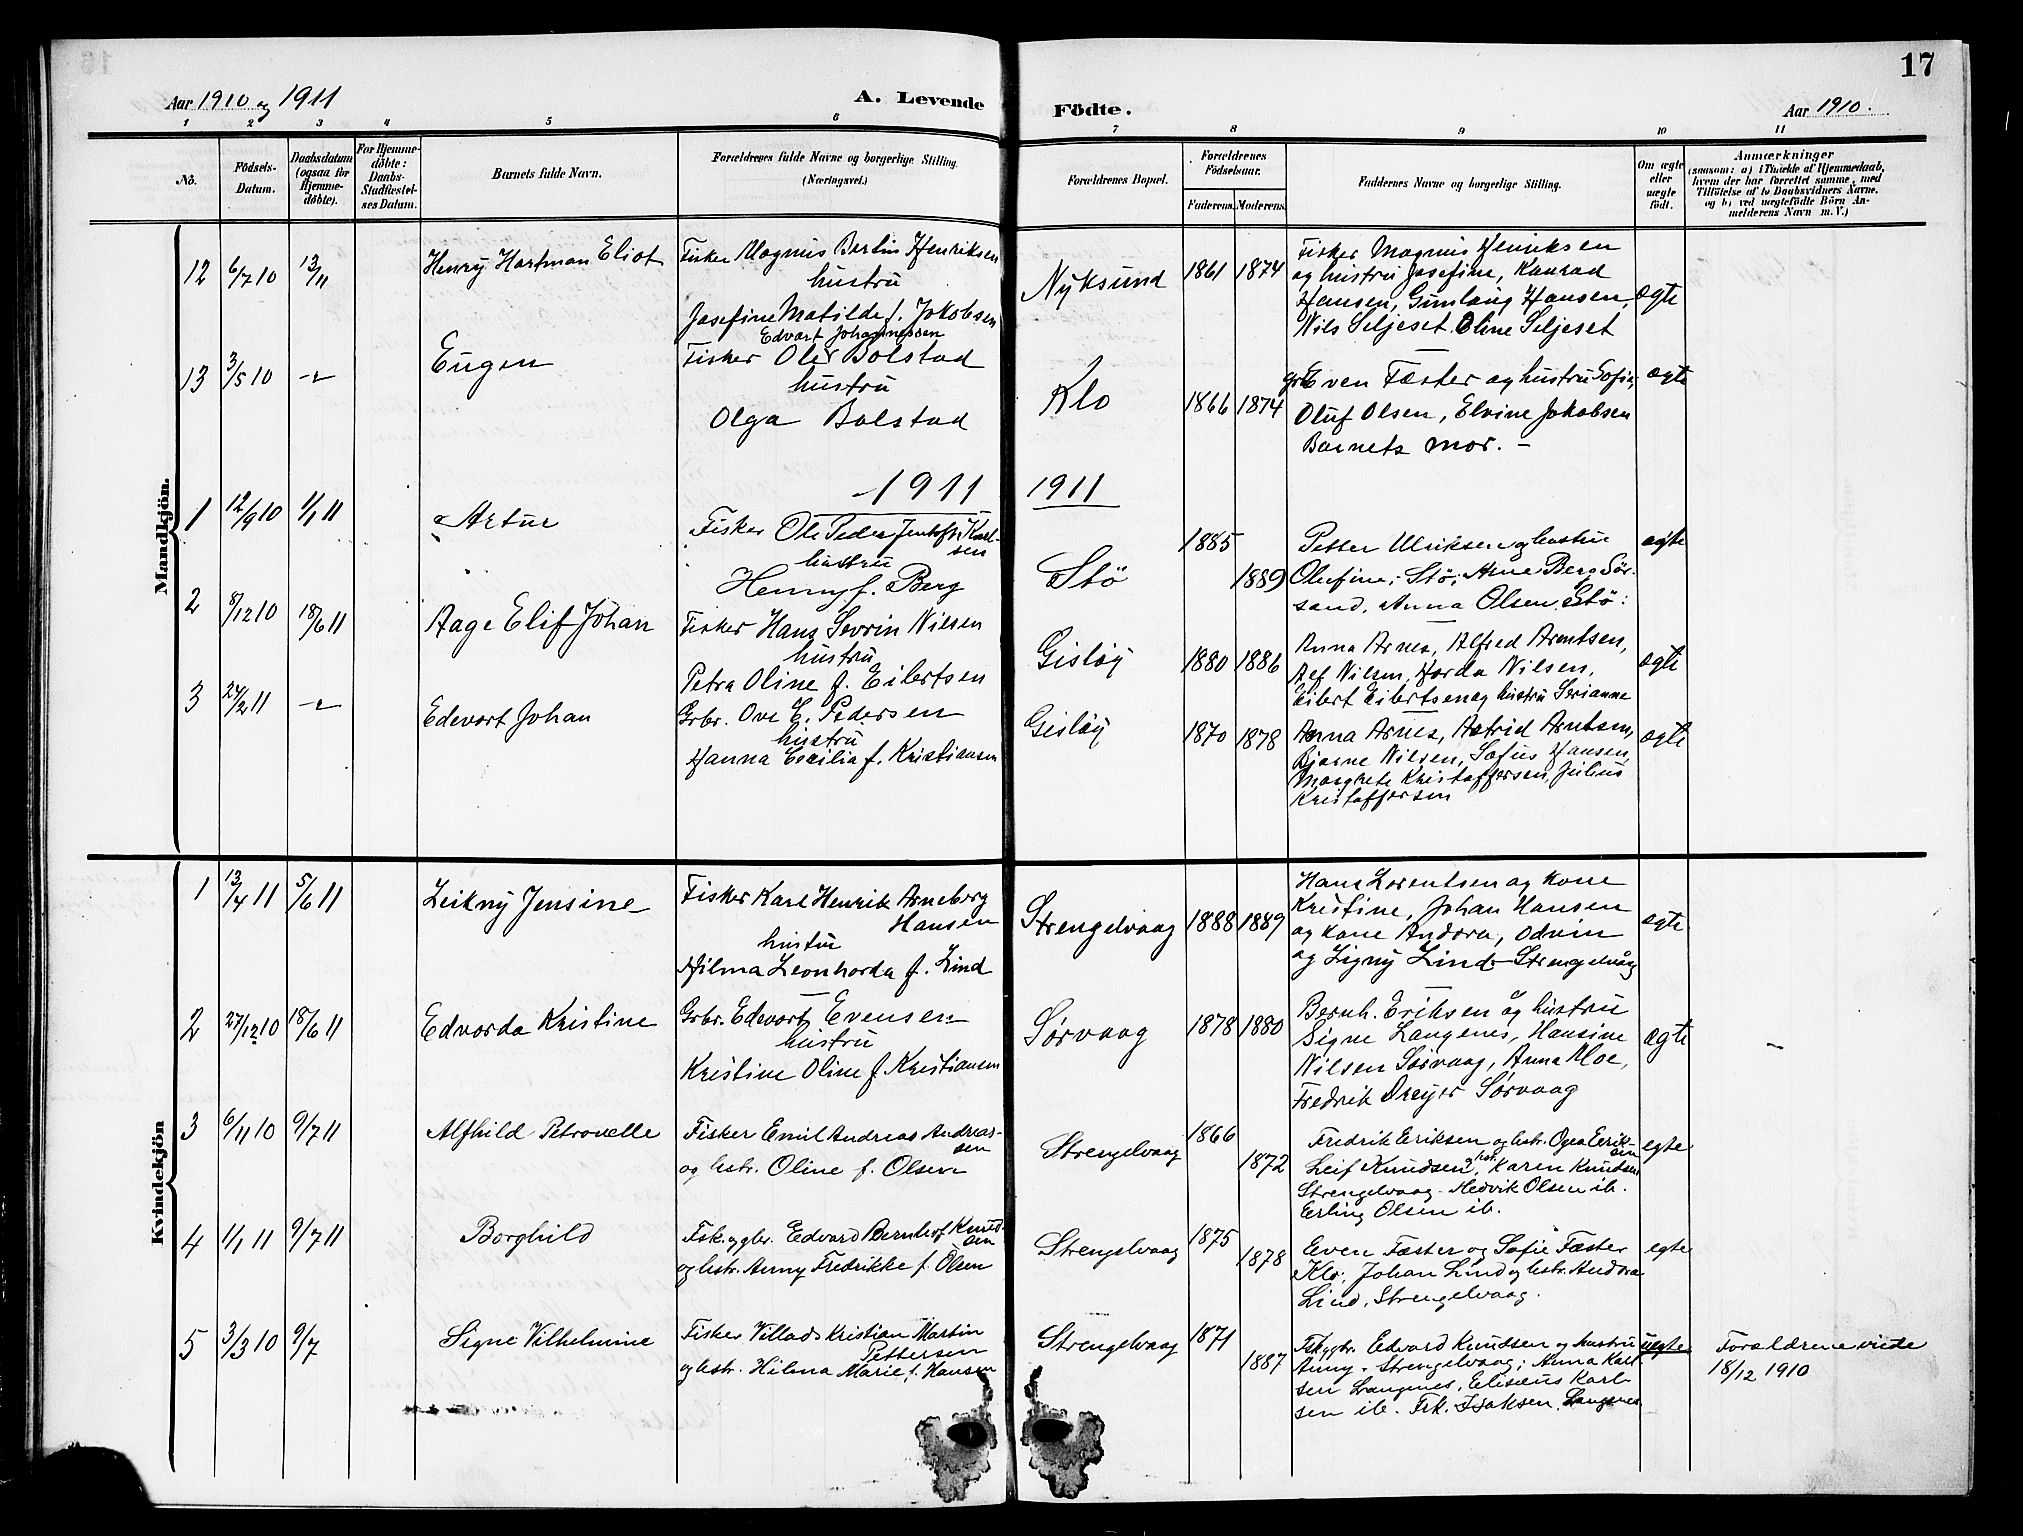 17
Aar 1910 og 1911
A. Levende
Födte.
Aar 1910.
1 2 3 4 5 6 7 8 9 10 11
No.
Födsels-
Datum.
Daabsdatum
(ogsaa for
Hjemme-
döbte).
For Hjemme-
döbte:
Daabs-
Stadfæstel-
ses Datum.
Barnets fulde Navn.
Forældrenes fulde Navne og borgerlige Stilling.
(Næringsvei.)
Forældrenes Bopæl.
Forældrenes
Födselsaar.
Faderens. Moderens.
Faddernes Navne og borgerlige Stilling.
Om ægte
eller
uægte
födt.
Anmærkninger
(saasom: a) i Tilfælde af Hjemmedaab,
hvem der har forrettet samme, med
Tilföielse af to Daabsvidners Navne,
og b) ved uægtefödte Börn An-
melderens Navn m. V.)
Mandkjön.
12 6/7 10 13/11 Henry Hartman Eliot
Fisker Magnus Bertin Henriksen
hustru
Josefine Matilde f. Jakobsen
Nyksund 1861 1874
Fisker Magnus Henriksen
og hustru Josefine, Konrad
Hansen, Gunlaug Hansen,
Nils Seljeset Oline Seljeset
ægte
13 3/5 10 Eugen
Edvart Johannessen
Fisker Ole Bolstad
hustru
Olga Bolstad
Klo 1866 1874
grb Even Fæster og hustru Sofie,
Oluf Olsen, Elvine Jakobsen
Barnets mor. –
ægte
1911
1911
1 12/9 10 1/1 11 Artur
Fisker Ole Peder Jentoft Karl-
sen
hustru
Henny f. Berg
Stö 1885 1889
Petter Ulriksen og hustru
Olufine, Stö; Arne Berg Sör-
sand, Anna Olsen Stö:
ægte
2 8/12 10 18/6 11 Aage Elif Johan
Fisker Hans Sevrin Nilsen
hustru
Petra Oline f. Eilertsen
Gisløy 1880 1886
Anna Arnes, Alfred Arntsen,
Alf Nilsen, Horda Nilsen,
Eilert Eilertsen og hustru Serianne
ægte
3 24/2 11 Edevart Johan
Grbr. Ove E. Pedersen
hustru
Hanna Cecilia f. Kristiansen
Gisløy 1870 1878
Anna Arnes, Astrid Arntsen,
Bjarne Nilsen, Sofus Hansen,
Margrete Kristoffersen, Julius
Kristoffersen
ægte
Kvindekjön
1 13/4 11 5/6 11 Leikny Jensine
Fisker Karl Henrik Arneborg
Hansen
hustru
Hilma Leonharda f. Lind
Strengelvaag 1888 1889
Hans Lorentsen og kone
Kristine, Johan Hansen
og kone Andora, Odvin
og Signy Lind – Strengelvåg
ægte
2 27/12 10 18/6 11 Edvarda Kristine
Grbr. Edevart Evensen
hustru
Kristine Oline f. Kristiansen
Sørvaag 1878 1880
Bernh. Eriksen og hustru
Signe Langenes, Hansine
Nilsen Sørvaag, Anna Moe,
Fredrik Dreyer Sørvaag
ægte –
3 6/11 10 9/7 11 Alfhild Petronelle
Fisker Emil Andreas Andreas-
sen
og hstr. Oline f. Olsen
Strengelvaag 1866 1872
Fredrik Eriksen og hstr. Ogea Erik-
sen
Leif Knudsen, hst. Karen Knudsen
Strengelvaag – Hedvik Olsen ib.
Erling Olsen ib.
egte
4 1/1 11 9/7 11 Borghild
Fisk. og gbr. Edvard Bernhof Knud-
sen
og hstr. Anny Fredrikke f. Olsen
Strengelvaag 1875 1878
Even Fæster og Sofie Fæster
Klo, Johan Lind og hstr. Andora
Lind, Strengelvaag.
egte
5 3/3 10 9/7 Signe Vilhelmine
Fisker Villads Kristian Martin
Pettersen
og hstr. Hilma Marie f. Hansen
Strengelvaag 1871 1887
Fsk. og gbr. Edvard Knudsen og hustru
Anny – Strengelvaag; Anna Karl-
sen Langenes, Eliseus Karl-
sen ib. Frk. Isaksen, Langenes
uegte
Foreldrene viede
18/12 1910